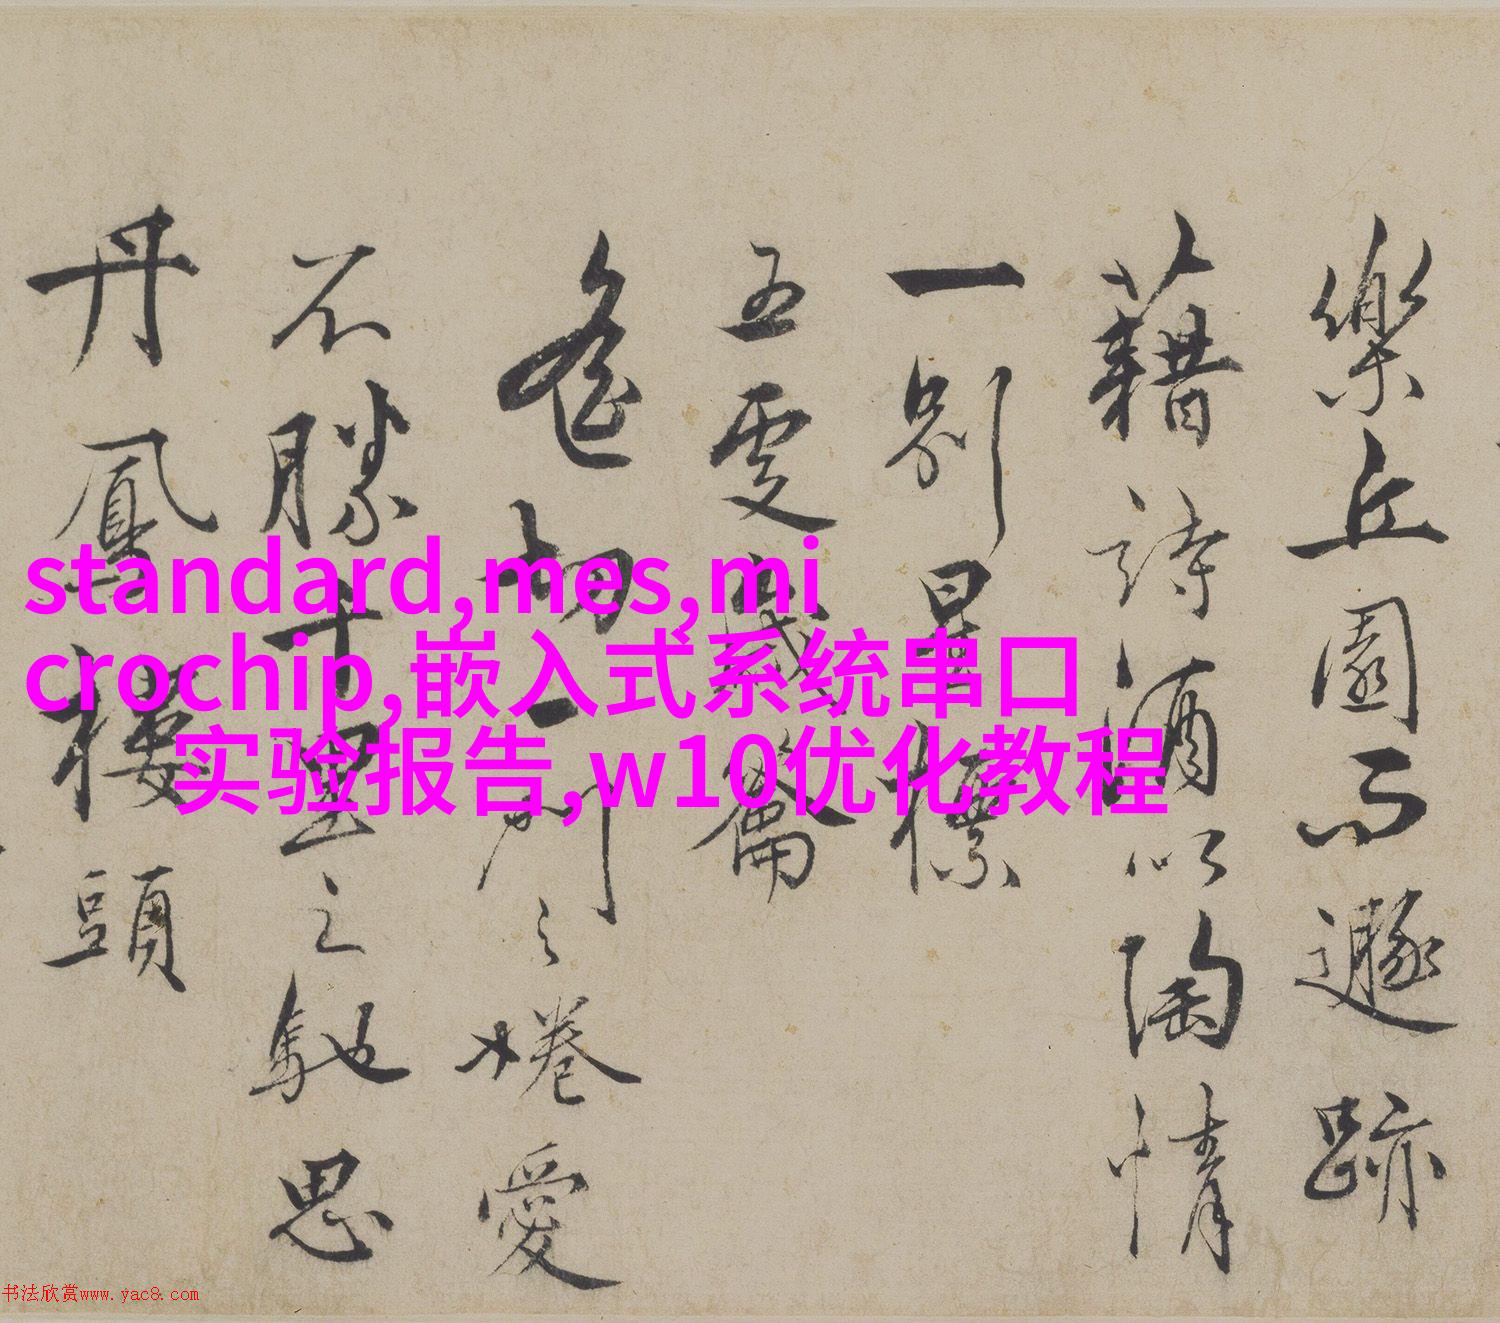 樂丘園而遯跡
藉詩酒以陶情
一别星標
五更歲籥
遙切一別之惓愛
不勝千里之馳思
丹鳳樓頭
standard,mes,mi
crochip,嵌入式系统串口
实验报告,w10优化教程
书法欣赏www.yac8.com